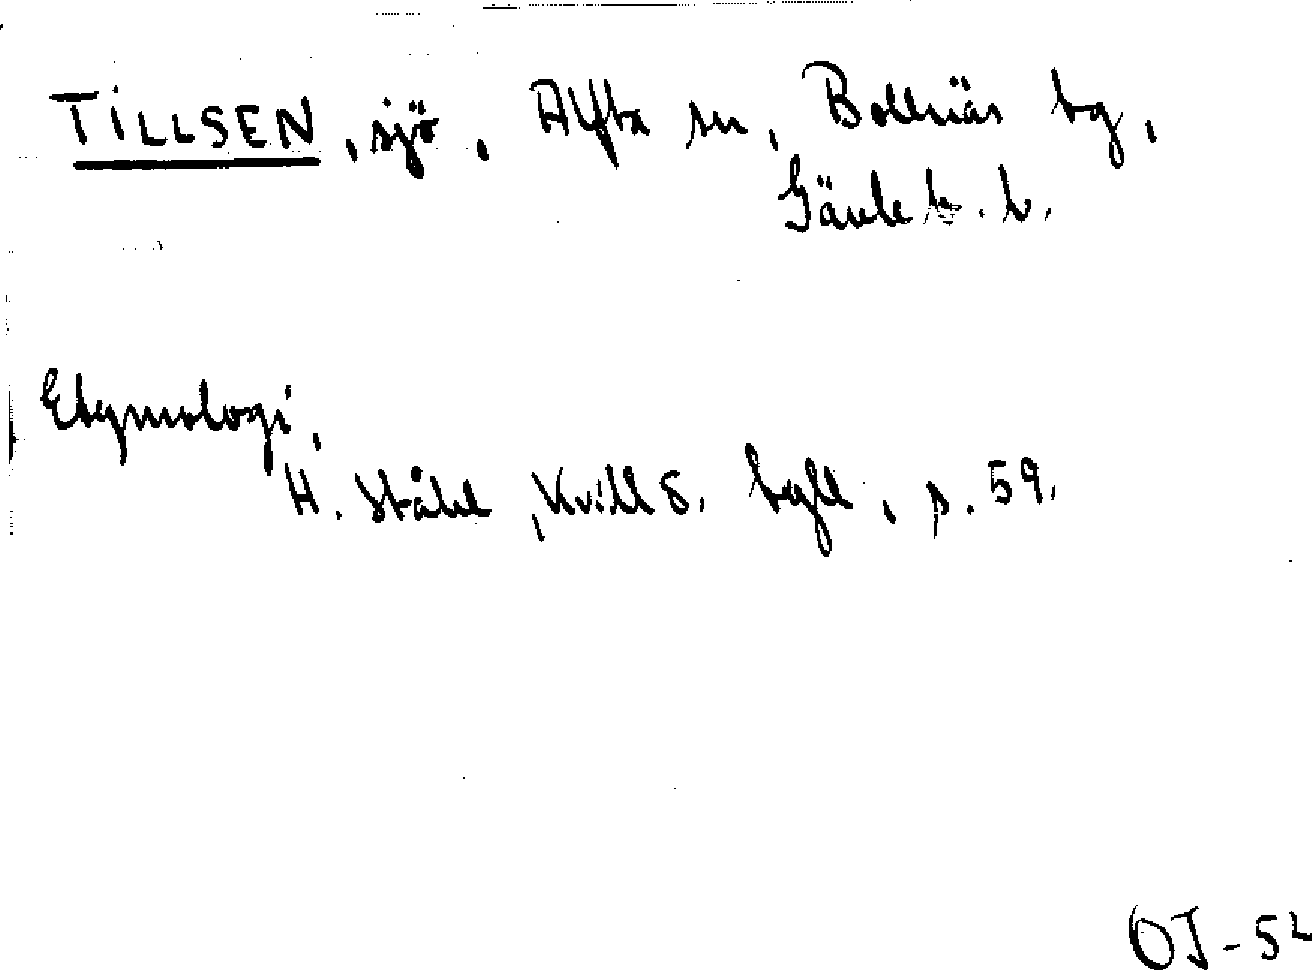 TILLSEN, sjö, Alfta sn, Bollnäs tg,
Gävleb. l.
Etymologi.
H. Ståhl, Kvill o. tyll, s. 59.
OJ-52